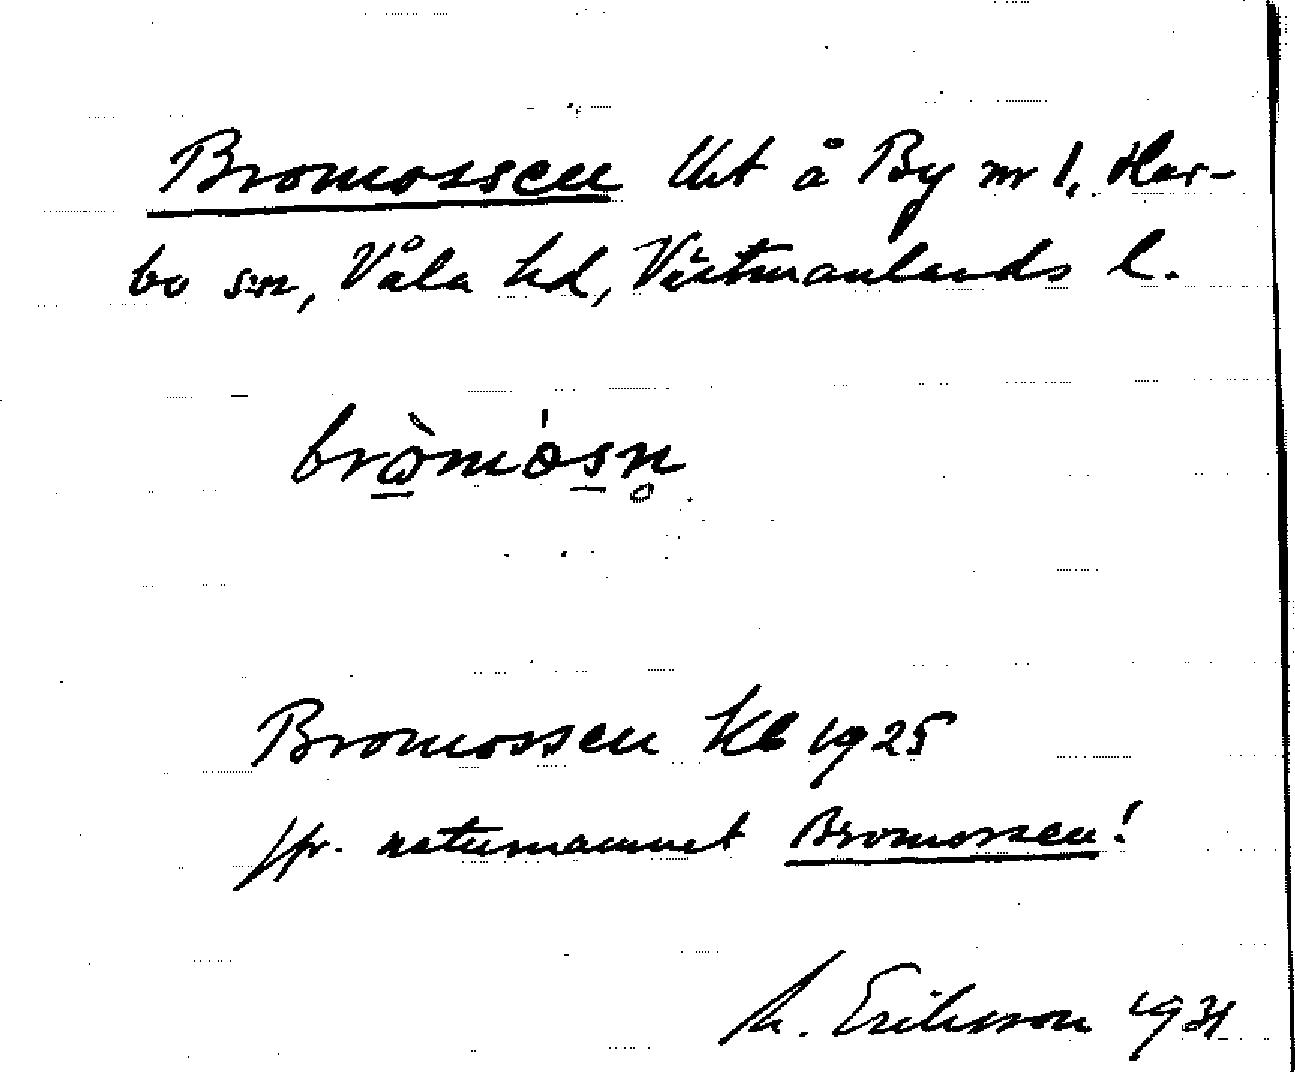 Bromossen lht å By nr 1, Har-
bo sn, Våla hd, Västmanlands l.
brɷ̀mósn̥
Bromossen Kb 1925
jfr. naturnamnet Bromossen!
M. Eriksson 1931